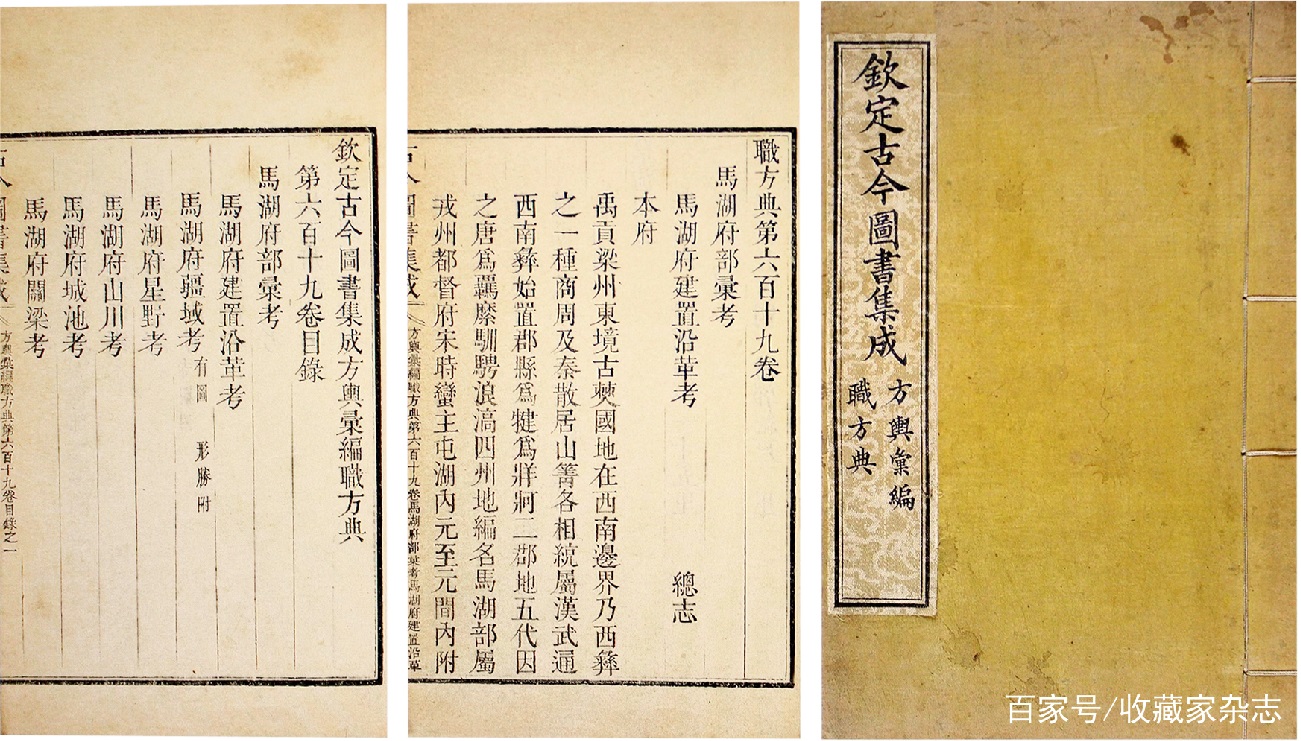 欽定古今圖書集成
方輿彙編
職方典
職方典第六百十九卷
馬湖府部彙考
馬湖府建置沿革考 總志
本府
禹貢梁州東境古僰國地在西南邊界乃西彝
之一種商周及秦散居山箐各相統屬漢武通
西南彝始置郡縣爲犍爲牂牁二郡地五代因
之唐爲羈縻馴騁浪滈四州地編名馬湖部屬
戎州都督府宋時蠻主屯湖內元至元間內附
古今圖書集成 方輿彙編職方典第六百十九卷馬湖府部彙考馬湖府建置沿革
欽定古今圖書集成方輿彙編職方典
第六百十九卷目錄
馬湖府部彙考
馬湖府建置沿革考
馬湖府疆域考 有圖 形勝附
馬湖府星野考
馬湖府山川考
馬湖府城池考
馬湖府關梁考
古今圖書集成 方輿彙編職方典第六百十九卷目錄之一
百家号/收藏家杂志